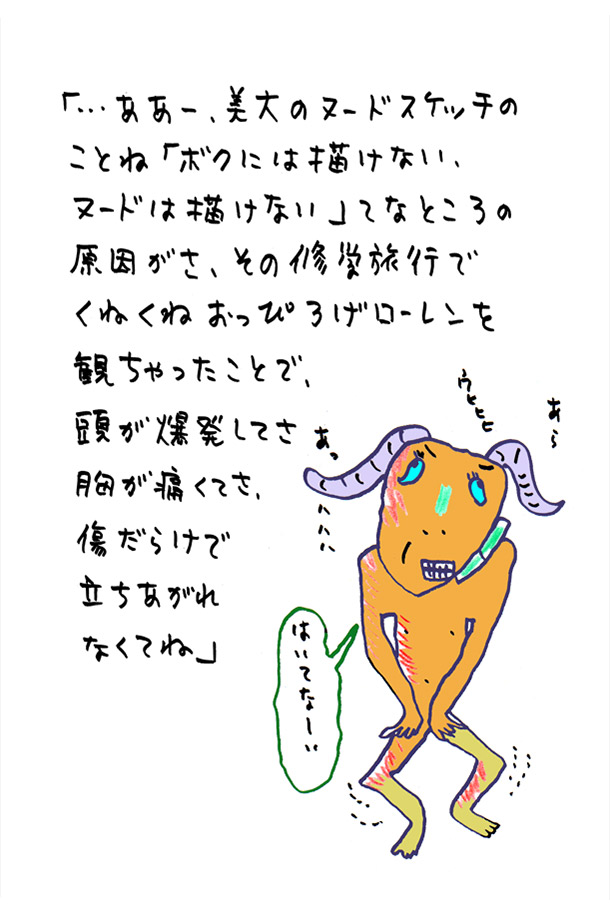 「…ああー、美大のヌードスケッチの
ことね「ボクには描けない、
ヌードは描けない」てなところの
原因がさ、その修学旅行で
くねくねおっぴろげローレンを
観ちゃったことで、
頭が爆発してさ
胸が痛くてさ、
傷だらけで
立ちあがれ
なくてね」
あら
ウヒヒヒ
あっハハハ
はいてなーい